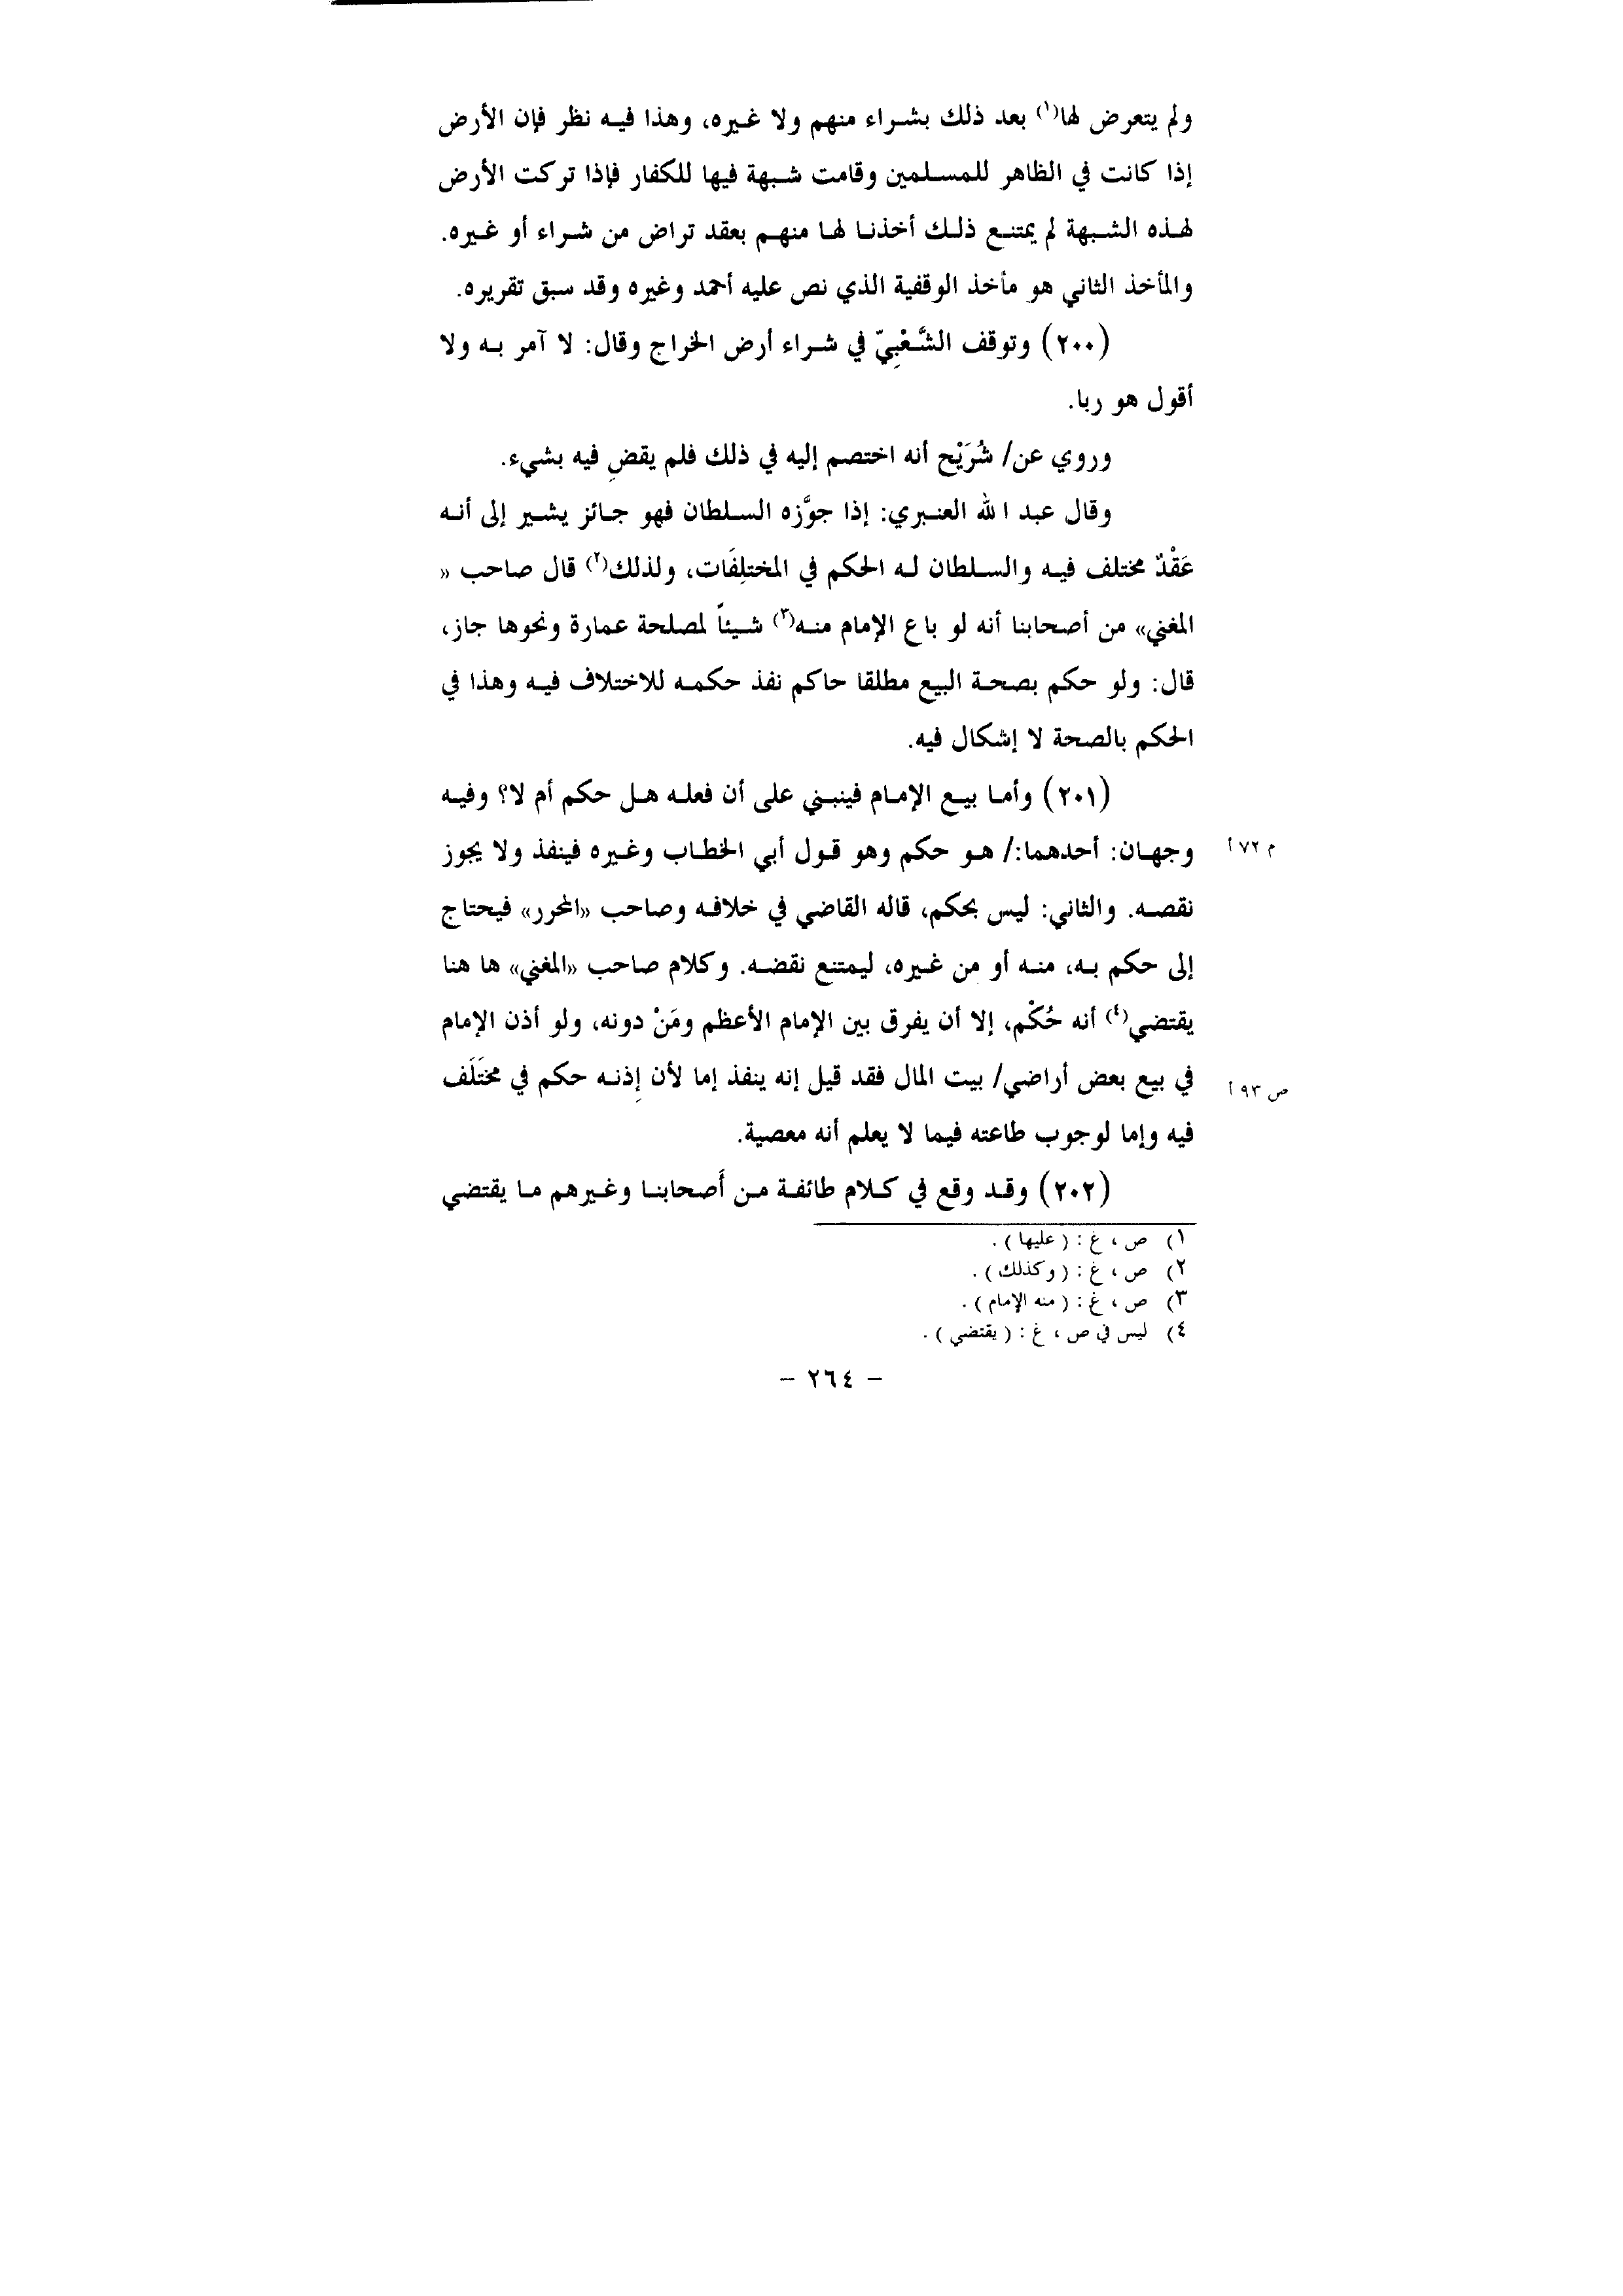 ولم يتعرض لها(١) بعد ذلك بشراء منهم ولا غيره، وهذا فيه نظر فإن الأرض
إذا كانت في الظاهر للمسلمين وقامت شبهة فيها للكفار فإذا تركت الأرض
لهذه الشبهة لم يمتنع ذلك أخذنا لها منهم بعقد تراض من شراء أو غيره.
والمأخذ الثاني هو مأخذ الوقفية الذي نص عليه أحمد وغيره وقد سبق تقريره.
(٢٠٠) وتوقف الشَّعْبِيّ في شراء أرض الخراج وقال: لا آمر به ولا
أقول هو ربا.
وروي عن/ شُرَيْح أنه اختصم إليه في ذلك فلم يقضِ فيه بشيء.
وقال عبد الله العنبري: إذا جوَّزه السلطان فهو جائز يشير إلى أنه
عَقْدٌ مختلف فيه والسلطان له الحكم في المختلِفَات، ولذلك(٢) قال صاحب «
المغني» من أصحابنا أنه لو باع الإمام منه(٣) شيئاً لمصلحة عمارة ونحوها جاز،
قال: ولو حكم بصحة البيع مطلقا حاكم نفذ حكمه للاختلاف فيه وهذا في
الحكم بالصحة لا إشكال فيه.
(٢٠١) وأما بيع الإمام فينبني على أن فعله هل حكم أم لا؟ وفيه
وجهان: أحدهما:/ هو حكم وهو قول أبي الخطاب وغيره فينفذ ولا يجوز
م ٧٢ أ
نقصه. والثاني: ليس بحكم، قاله القاضي في خلافه وصاحب «المحرر» فيحتاج
إلى حكم به، منه أو مِن غيره، ليمتنع نقضه. وكلام صاحب «المغني» ها هنا
يقتضي(٤) أنه حُكْم، إلا أن يفرق بين الإمام الأعظم ومَنْ دونه، ولو أذن الإمام
في بيع بعض أراضي/ بيت المال فقد قيل إنه ينفذ إما لأن إِذنه حكم في مختَلَف
ص ٩٣ أ
فيه وإما لوجوب طاعته فيما لا يعلم أنه معصية.
(٢٠٢) وقد وقع في كلام طائفة من أَصحابنا وغيرهم ما يقتضي
١) ص ، غ : ( عليها ) .
٢) ص ، غ : ( وكذلك ) .
٣) ص ، غ : ( منه الإمام ) .
٤) ليس في ص ، غ : ( يقتضي ) .
- ٢٦٤ -